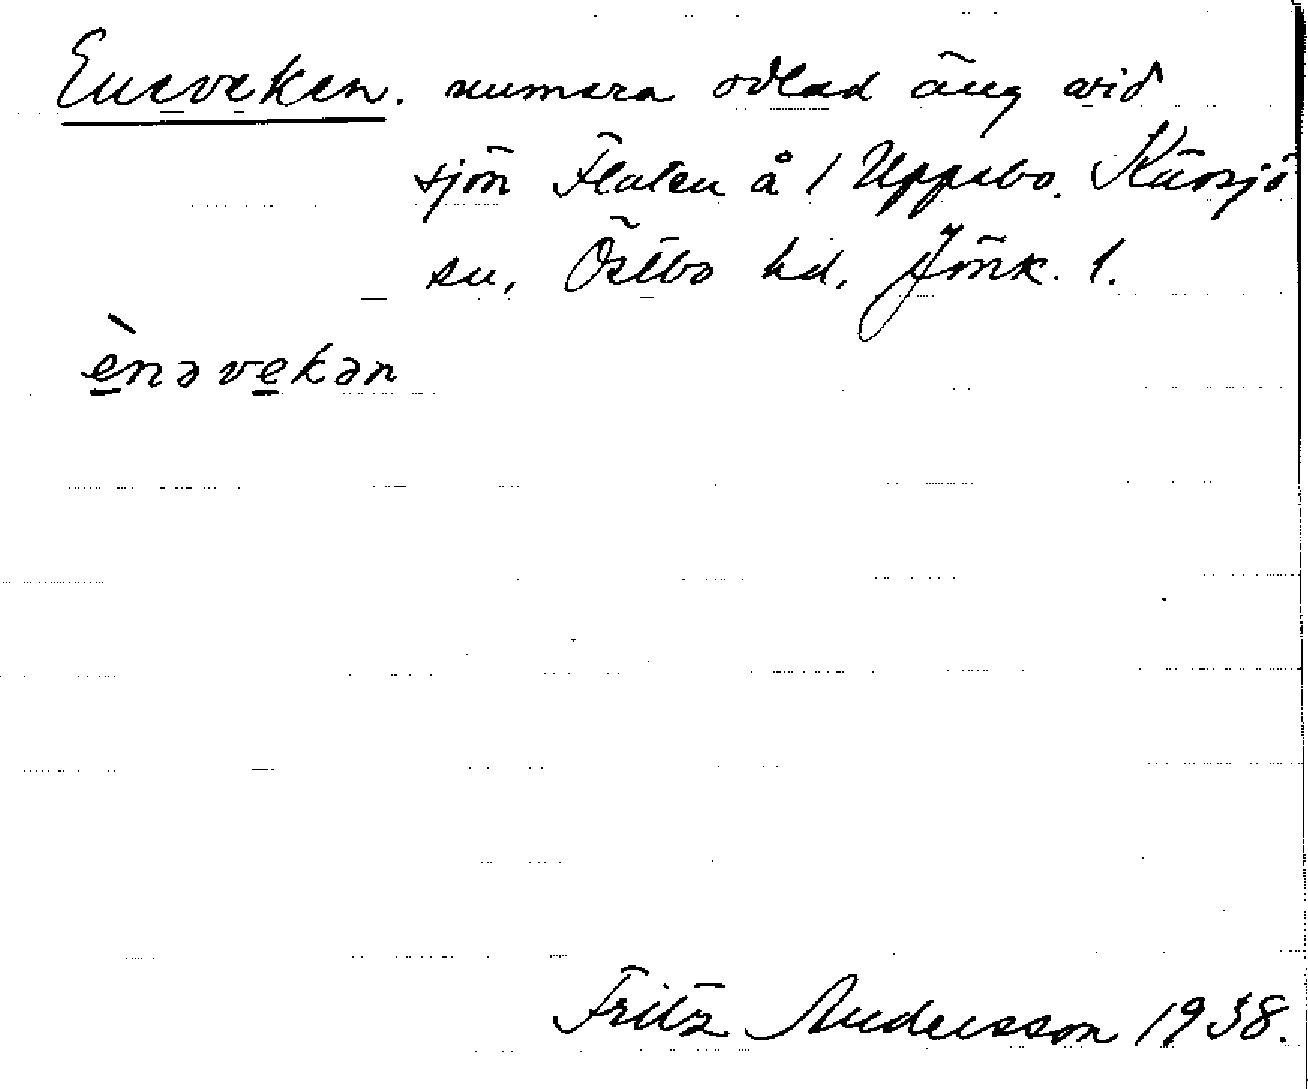 Eneveken. numera odlad äng vid
sjön Flaten å / Uppebo. Kärsjö
sn, Östbo hd, Jönk. l.
ènəvekən
Fritz Andersson 1938.